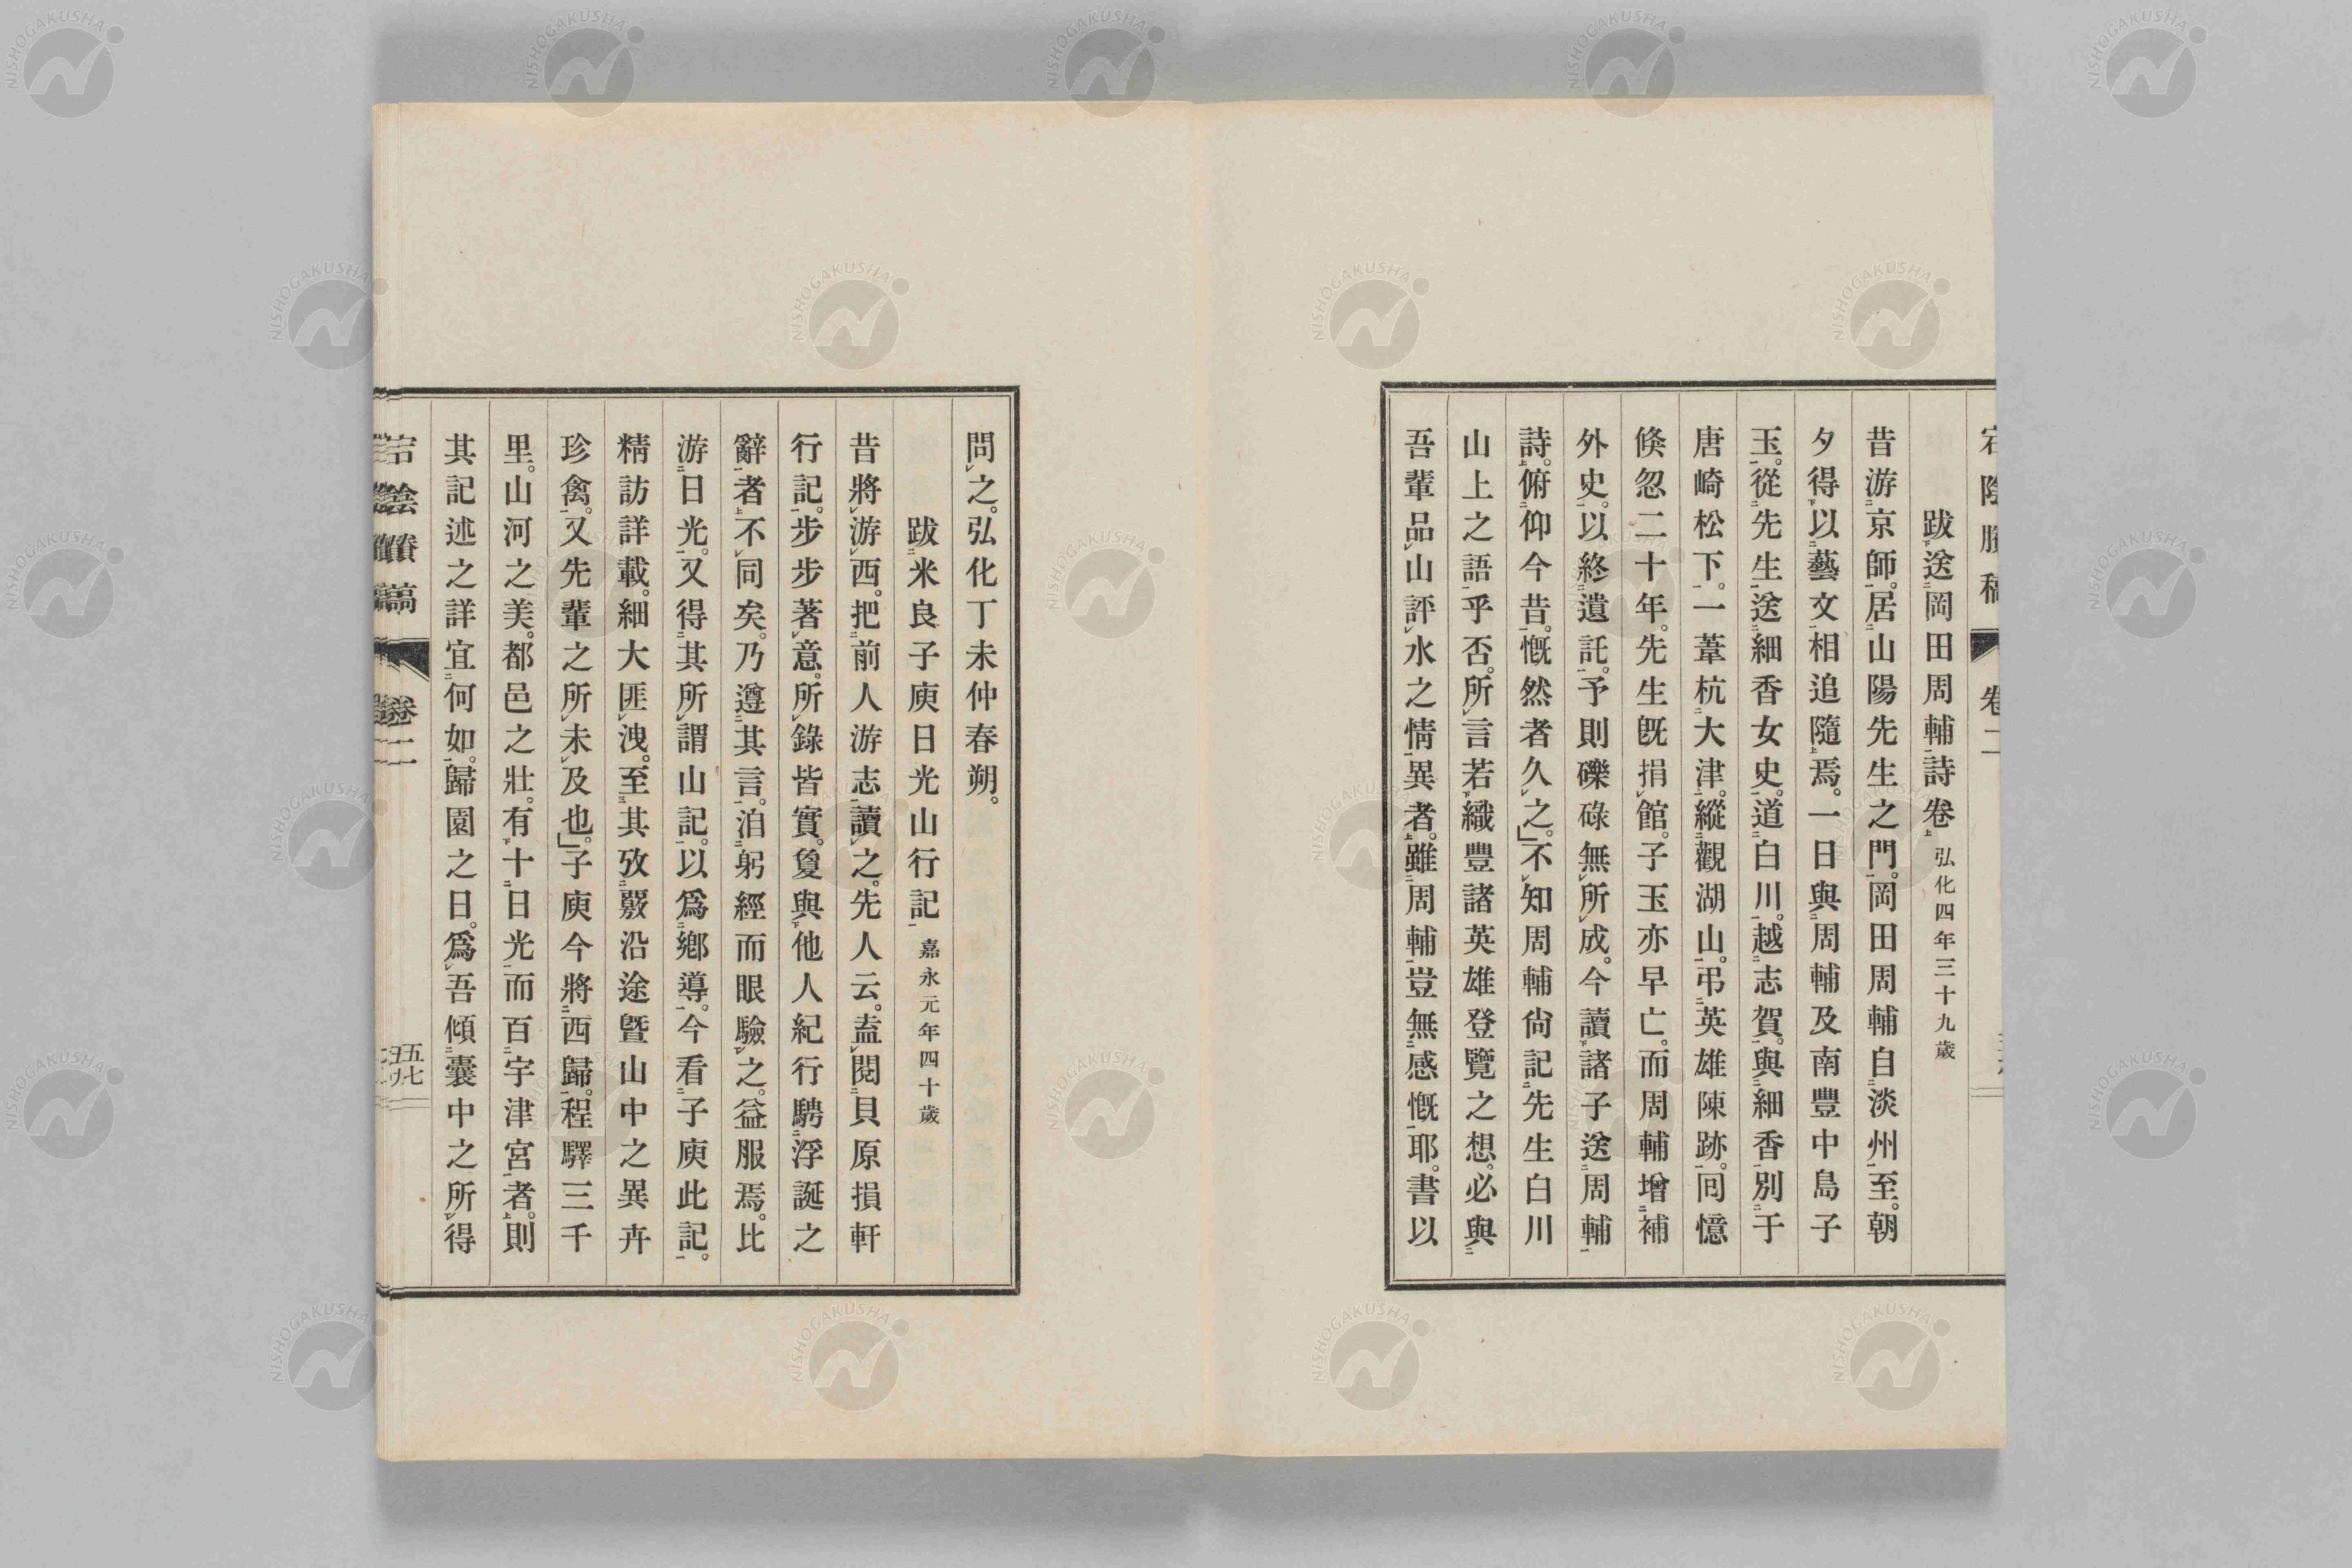 跋送岡田周輔詩卷 弘化四年三十九歲
昔游京師。居山陽先生之門。岡田周輔自淡州至。朝
夕得以藝文相追隨焉。一日與周輔及南豐中島子
玉。從先生送細香女史。道白川。越志賀。與細香別于
唐崎松下。一葦杭大津。縱觀湖山。弔英雄陳跡。囘憶
倐忽二十年。先生旣捐館。子玉亦早亡。而周輔增補
外史。以終遺託。予則礫碌無所成。今讀諸子送周輔
詩。俯仰今昔。慨然者久之。」不知周輔尙記先生白川
山上之語乎否。所言若織豐諸英雄登覽之想。必與
吾輩品山評水之情異者。雖周輔豈無感慨耶。書以
問之。弘化丁未仲春朔。
跋米良子庾日光山行記 嘉永元年四十歲
昔將游西。把前人游志讀之。先人云。盍閱貝原損軒
行記。步步著意。所錄皆實。夐與他人紀行騁浮誕之
辭者不同矣。乃遵其言。洎躬經而眼驗之。益服焉。比
游日光。又得其所謂山記。以爲鄕導。今看子庾此記。
精訪詳載。細大匪洩。至其攷覈沿途曁山中之異卉
珍禽。又先輩之所未及也。」子庾今將西歸。程驛三千
里。山河之美。都邑之壯。有十日光而百宇津宮者。則
其記述之詳宜何如。歸園之日。爲吾傾囊中之所得
卷二
NISHOGAKUSHA